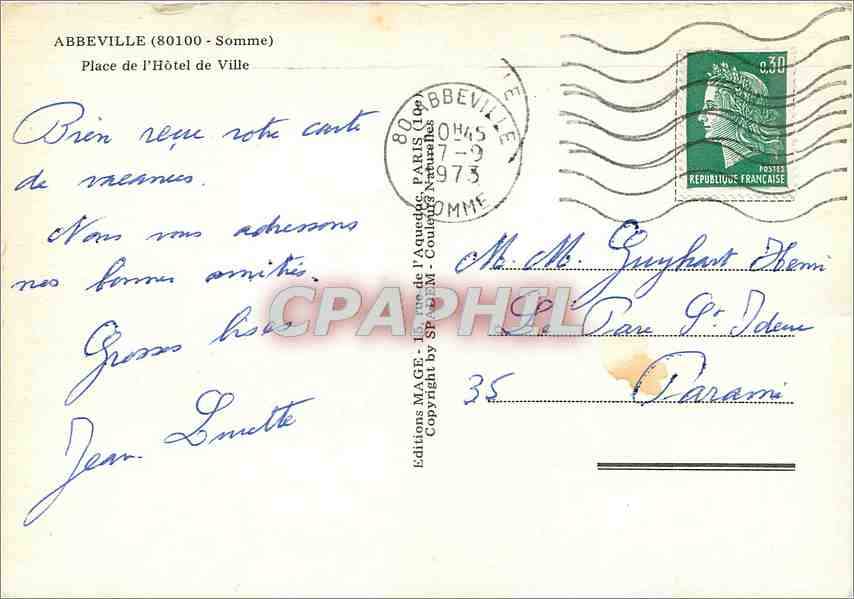 ABBEVILLE (80100 - Somme)
Place de l'Hôtel de Ville
Bien reçue votre carte
de vacances.
Nous vous adressons
nos bonnes amitiés.
Grosses bises
Jean. Lucette
80 ABBEVILLE
10H45
7-9
1973
SOMME
0,30
POSTES
RÉPUBLIQUE FRANÇAISE
Editions MAGE - 15, rue de l'Aqueduc, PARIS (10e)
Copyright by SPADEM - Couleurs Naturelles
M. M. Guyhart Henri
Le Parc St Ideuc
35 Paramé
CPAPHIL